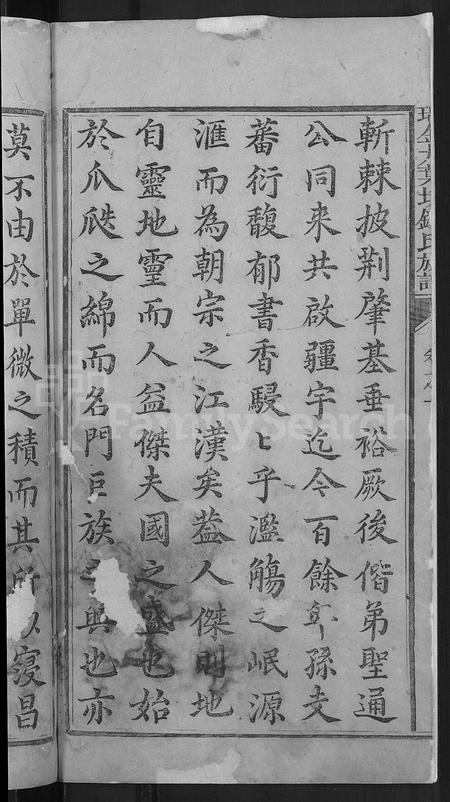 斬棘披荆肇基垂裕厥後偕弟聖通
公同来共啟疆宇迄今百餘年孫支
蕃衍馥郁書香駸〻乎濫觴之岷源
滙而為朝宗之江漢矣葢人傑則地
自靈地靈而人益傑夫國之盛也始
於瓜瓞之綿而名門巨族 興也亦
莫不由於單微之積而其所以寖昌
氏族譜
FamilySearch